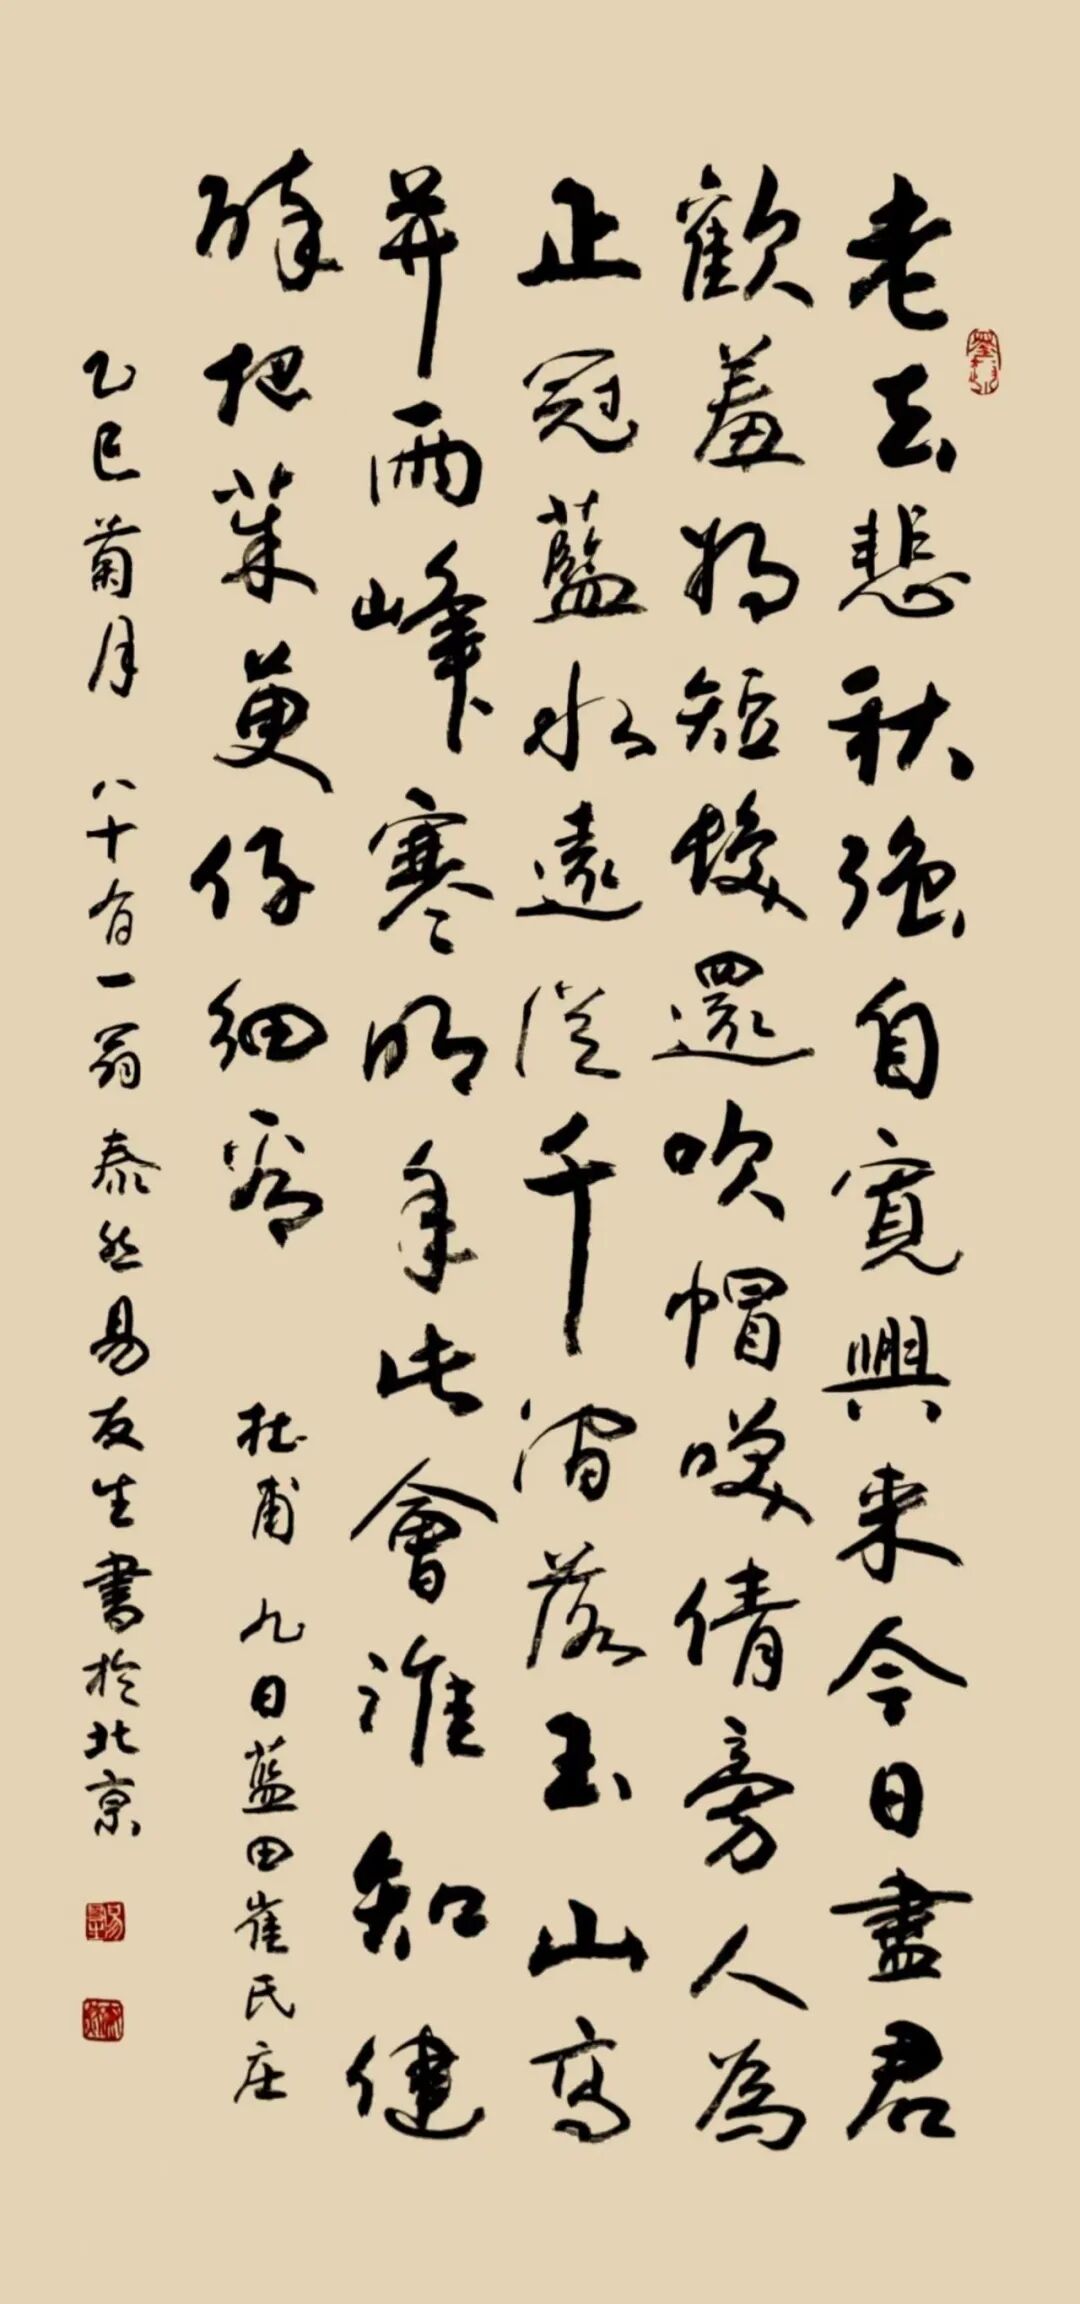 老去悲秋强自寬興来今日盡君
歡羞将短髮還吹帽咲倩旁人為
正冠藍水遠從千澗落玉山高
并兩峰寒明年此會誰知健
醉把茱萸仔細看 杜甫 九日蓝田崔氏庄
乙巳菊月 八十有一翁泰然易友生書於北京